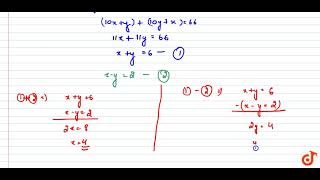 (10x+y) + (10y+x) = 66
11x + 11y = 66
x+y = 6 — ①
x-y = 2 — ②
①+② ⇒ x+y = 6
x-y = 2
2x = 8
x = 4
① - ② ⇒ x+y = 6
-(x-y = 2)
2y = 4